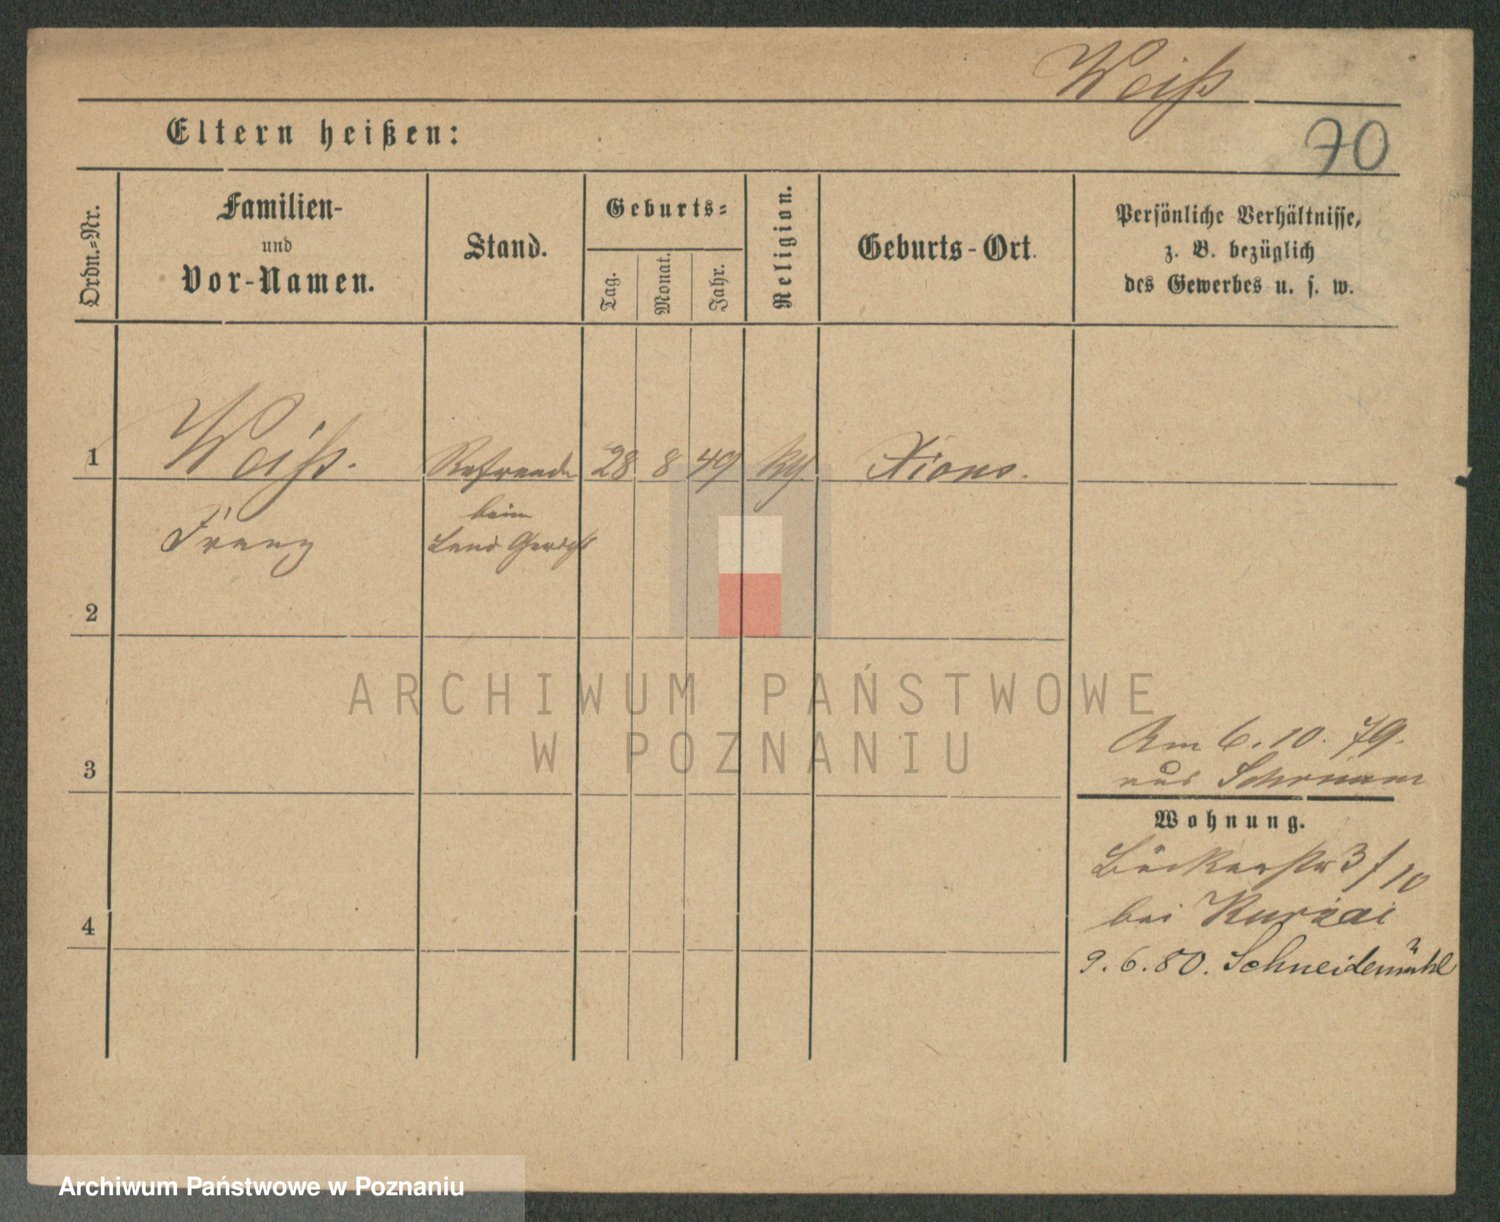 Weiß
Eltern heißen:
70
Ordn.-Nr.
Familien-
und
Vor-Namen.
Stand.
Geburts-
Tag.
Monat.
Jahr.
Religion.
Geburts-Ort.
Persönliche Verhältnisse,
z. B. bezüglich
des Gewerbes u. s. w.
1
Weiß.
28
8
49
Xions.
Franz
beim
Land Gericht
2
ARCHIWUM PAŃSTWOWE
W POZNANIU
3
4
Am 6. 10. 79.
aus Schrimm
Wohnung.
Bäckerstr 3/10
bei
9. 6. 80. Schneidemühl
Archiwum Państwowe w Poznaniu